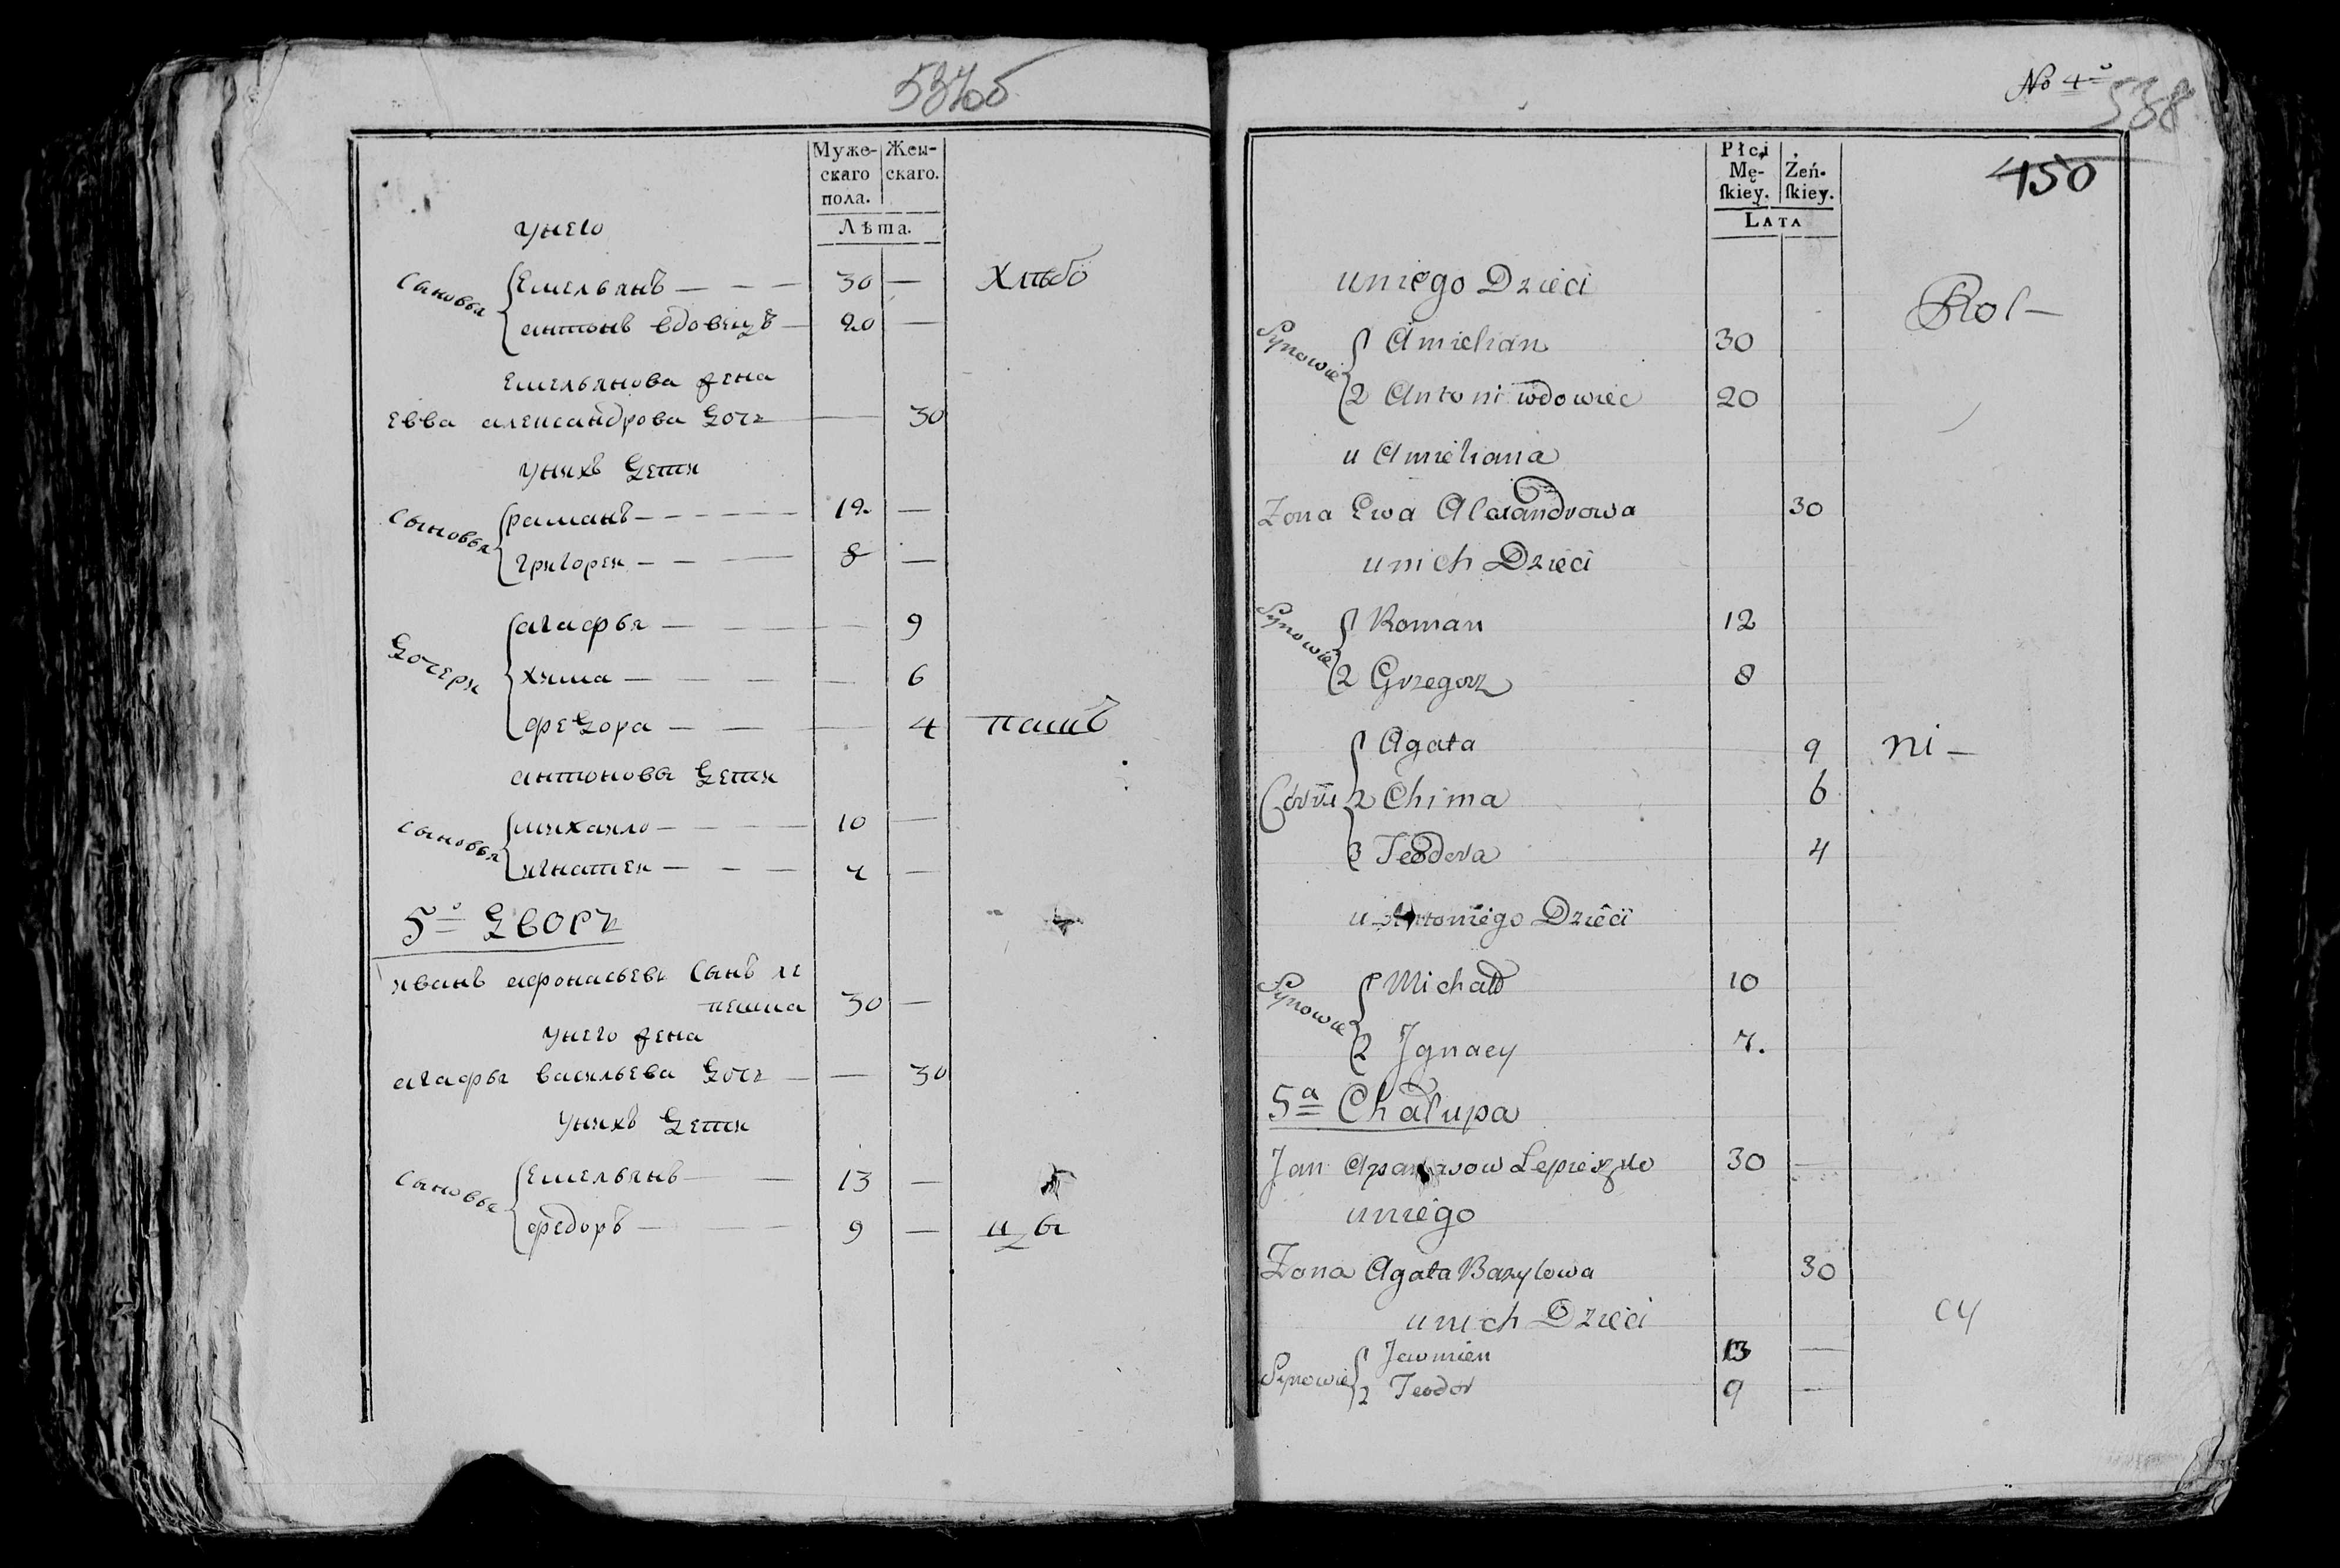 537об
Муже- Жен-
скаго скаго.
пола.
Лѣта.
у него
Сыновья
Емельянъ — — — 30 — Хлѣбо
антонъ вдовецъ — 20 —
Емельянова жена
Евва александрова дочь — 30
у нихъ дети
Сыновья
раманъ — — — — 12 —
григореи — — — 8 —
дочери
агафья — — — — 9
хима — — — — 6
федора — — — 4 пашъ
антоновы дети
сыновья
михаило — — — 10 —
игнатеи — — — 7 —
5й дворъ
иванъ афонасьевъ сынъ ле
пешка 30 —
у него жена
агафья васильева дочь — — 30
у нихъ дети
сыновья
Емельянъ — — 13 —
федоръ — — — 9 — цы
No 4о
538
450
Płci
Mę- Żeń-
ſkiey. ſkiey.
Lata
u niego Dzieci
Synowie
Amielian 30 Rol—
2 Antoni wdowiec 20
u Amieliana
Zona Ewa Alexandrowa 30
u nich Dzieci
Synowie
Roman 12
2 Grzegorz 8
Agata 9 ni—
Corki 2 Chima 6
3 Teodora 4
u Antoniego Dzieci
Synowie
Michał 10
2 Jgnacy 7.
5a Chałupa
Jan Apanasow Lepieszko 30 —
u niego
Zona Agata Bazylowa 30
u nich Dzieci cy
Synowie
Jawmien 13 —
2 Teodor 9 —